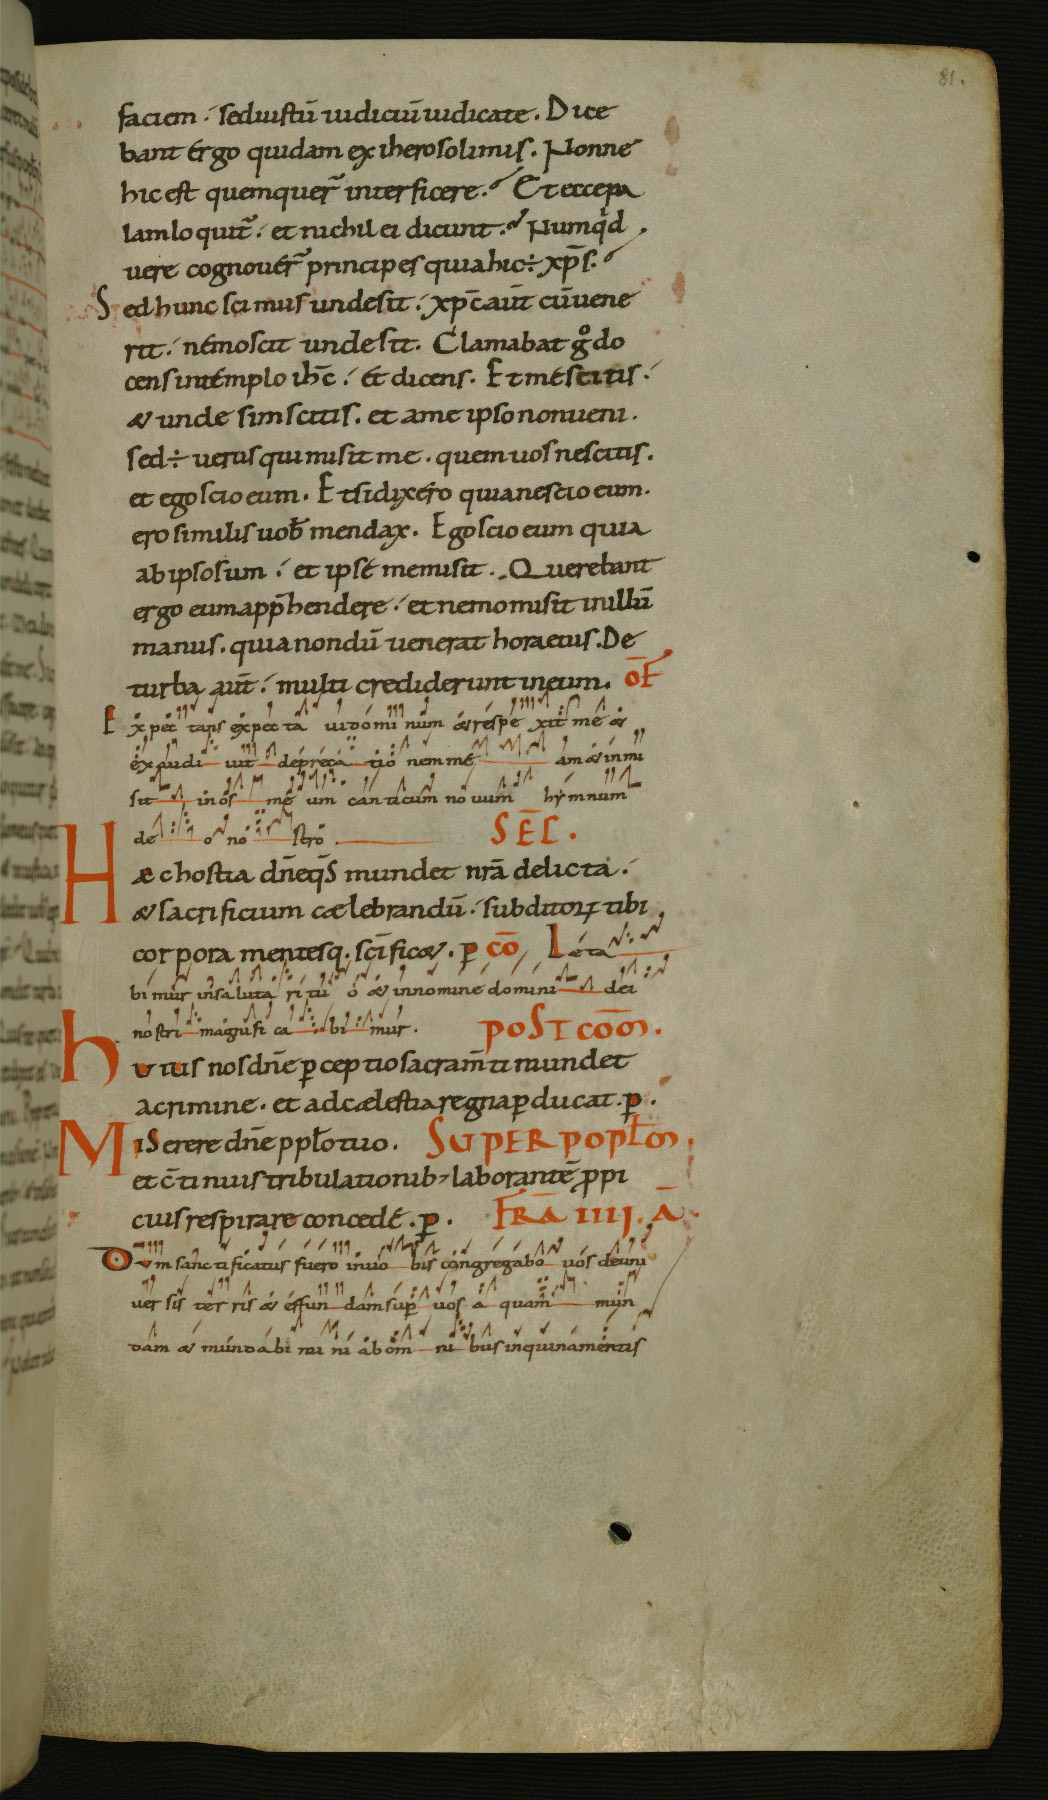 81.
faciem · sed iustū iudiciū iudicate. Dice
bant ergo quidam ex iherosolimis. Nonne
hic est quem quer̄ interficere. Et ecce pa
lam loquit̄. et nichil ei dicunt. Numqd
uere cognouer̄ principes quia hic ÷ xp̄s.
Sed hunc scimus unde sit. xp̄c aut̄ cū uene
rit. nemo scit unde sit. Clamabat gͦ do
cens in templo ih̄c. et dicens. Et me scitis.
& unde sim scitis. et a me ipso non ueni.
sed ÷ uerus qui misit me. quem uos nescitis.
et ego scio eum. Et si dixero quia nescio eum.
ero similis uob̄ mendax. Ego scio eum quia
ab ipso sum. et ipse me misit. Querebant
ergo eum app̄hendere. et nemo misit in illū
manus. quia nondū uenerat hora eius. De
turba aut̄. multi crediderunt in eum. ōF
Expectans expecta ui dominum & respexit me &
exaudiuit deprecationem meam & inmi
sit in os meum canticum nouum hymnum
deo nostro. SĒC.
Hæc hostia dn̄e qs̄ mundet nr̄a delicta.
& sacrificium cælebrandū. subditoꝝ tibi
corpora mentesq. scīfic&. p cō Læta
bimur in salutari tuo & in nomine domini dei
nostri magnificabimur. post cōm.
huius nos dn̄e perceptio sacram̄ti mundet
a crimine. et ad cælestia regna perducat. p.
Miserere dn̄e pplo tuo. SUPER POPłm.
et c̄tinuis tribulationib; laborantē propi
cius respirare concede. p. FR̄A IIII. Ā.
Dum sanctificatus fuero in uobis congregabo uos de uni
uersis terris & effundam super uos aquam mun
dam & mundabimini ab omnibus inquinamentis